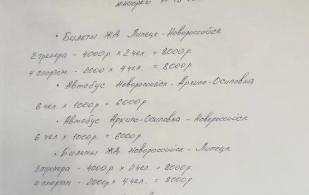 • Билеты ЖД Липецк - Новороссийск
2 тренера - 4000р × 2 чел. = 8000р
4 спортсм - 2000 × 4 чел. = 8000р
• Автобус Новороссийск - Архипо-Осиповка
6 чел × 1000р = 6000р
• Автобус Архипо-Осиповка - Новороссийск
6 чел × 1000р. = 6000р
• Билеты ЖД Новороссийск - Липецк
2 тренера - 4000р × 2 чел. = 8000р
4 спортсм - 2000р × 4 чел. = 8000р